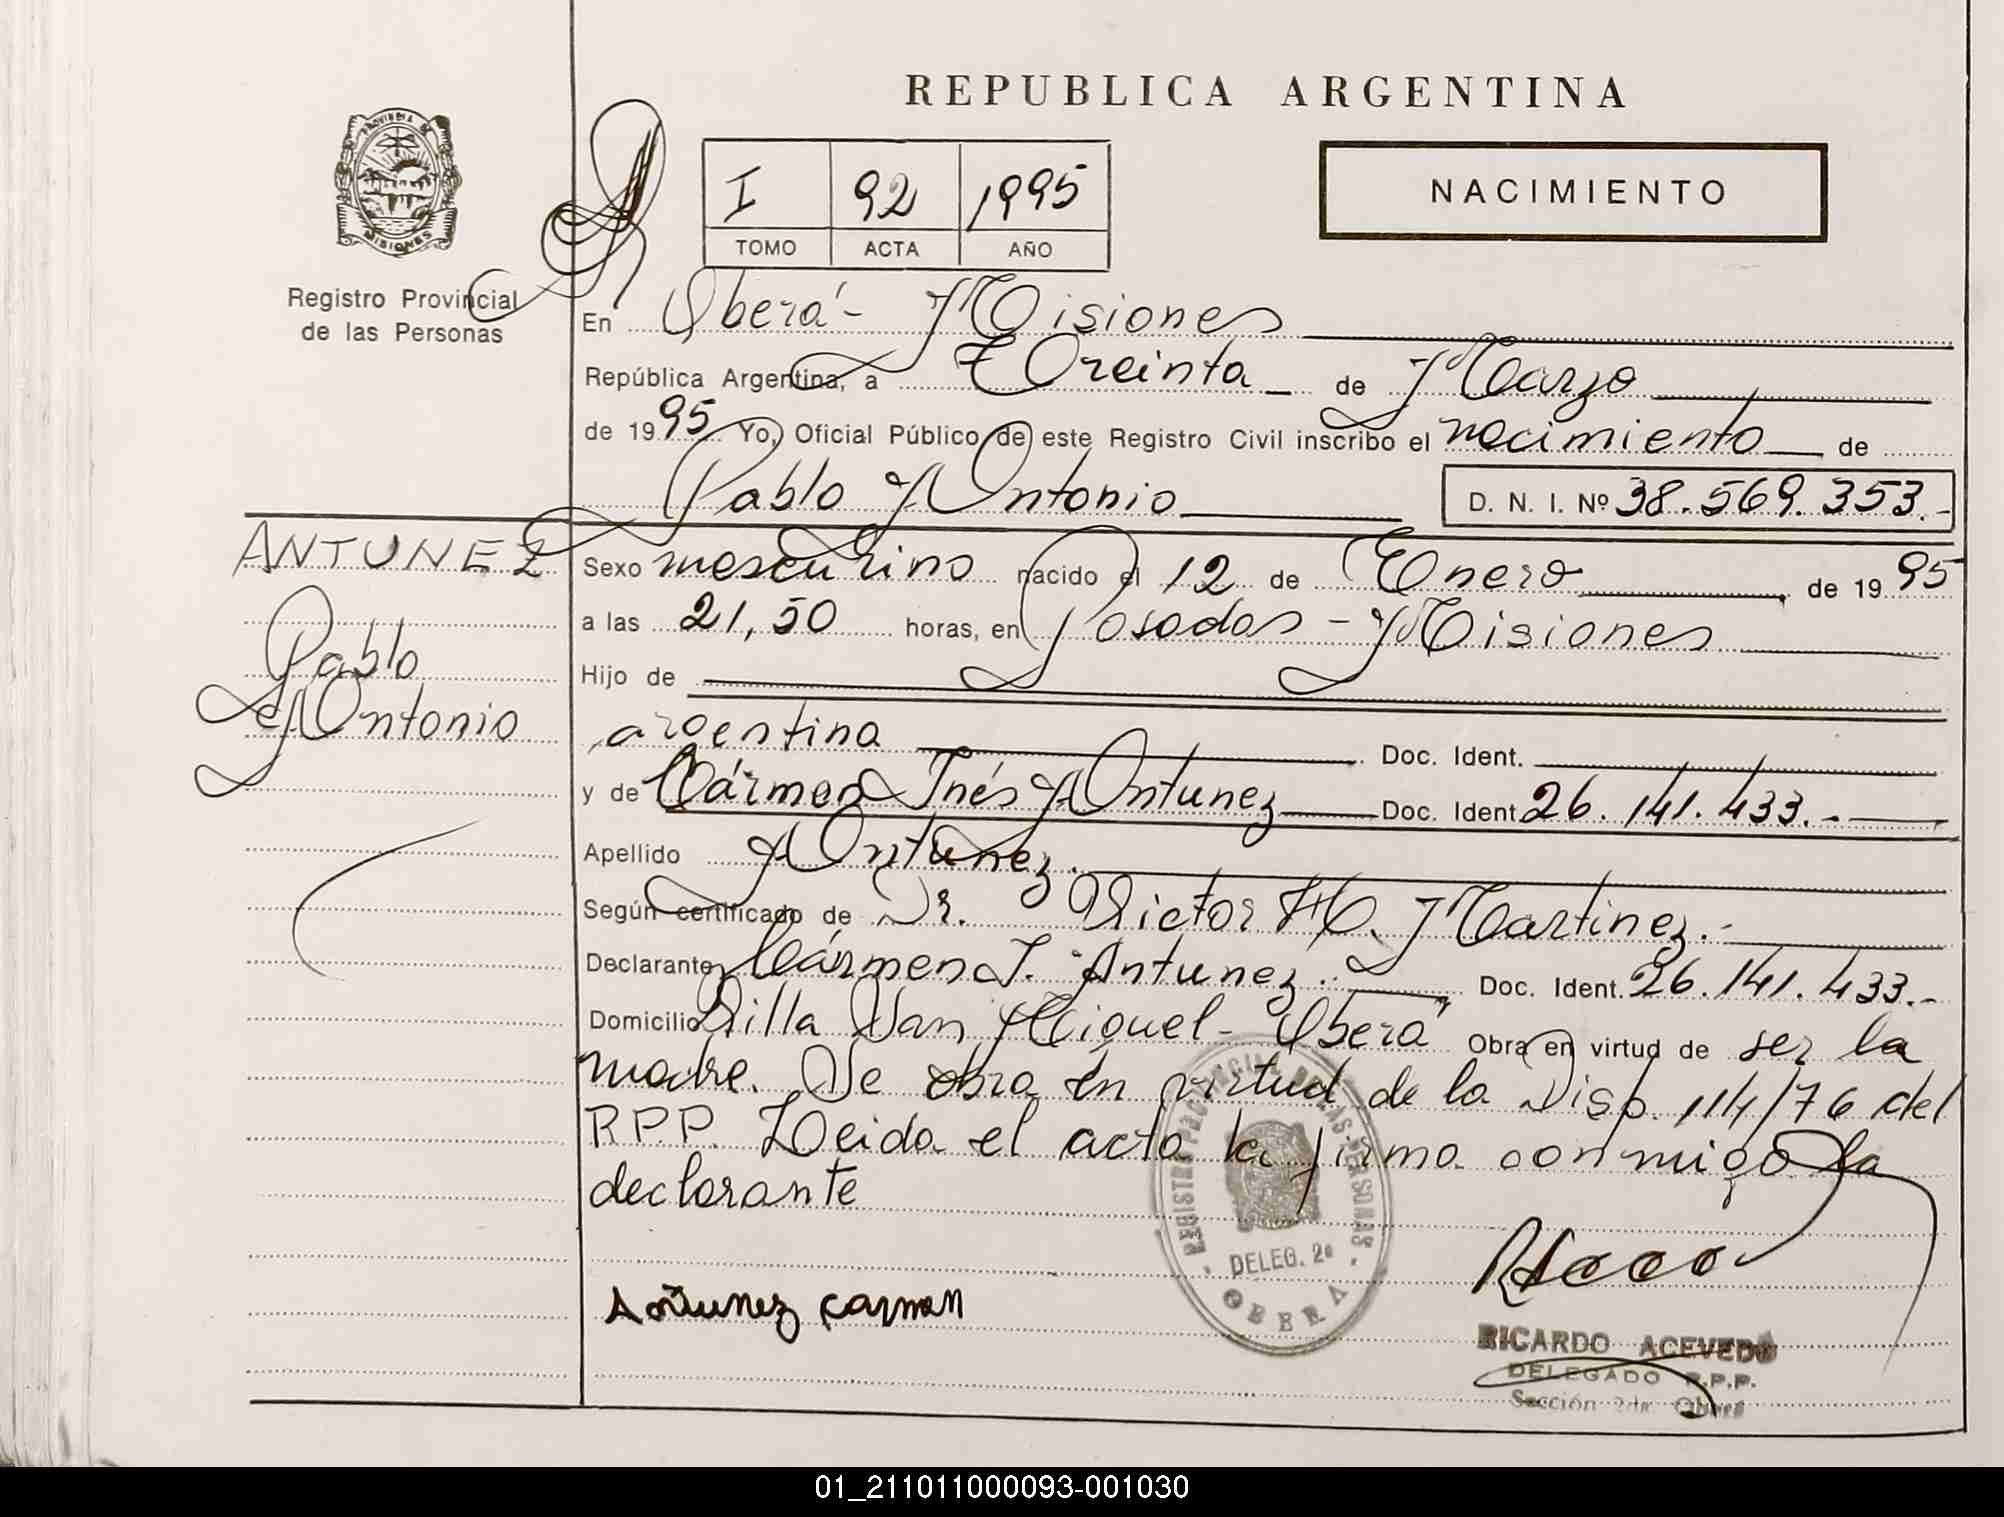 REPUBLICA ARGENTINA
PROVINCIA DE
MISIONES
Registro Provincial
de las Personas
I 92 1995
TOMO ACTA AÑO
NACIMIENTO
En Oberá - Misiones
República Argentina, a Treinta de Marzo
de 1995 Yo, Oficial Público de este Registro Civil inscribo el nacimiento de
Pablo Antonio D. N. I. Nº 38.569.353.-
ANTUNEZ
Pablo
Antonio
Sexo masculino nacido el 12 de Enero de 1995
a las 21,50 horas, en Posadas - Misiones
Hijo de
argentina Doc. Ident.
y de Cármen Inés Antunez Doc. Ident. 26.141.433.-
Apellido Antunez.
Según certificado de Dr. Victor H. Martinez.-
Declarante Cármen I. Antunez. Doc. Ident. 26.141.433.-
Domicilio Villa San Miguel - Oberá Obra en virtud de ser la
madre. Se obra en virtud de la Disp. 114/76 del
R.P.P. Leida el acta la firma conmigo la
declarante
REGISTRO PROVINCIAL DE LAS PERSONAS
DELEG. 2ª
OBERA
Antunez Carmen
RICARDO ACEVEDO
DELEGADO R.P.P.
Sección 2da. Oberá
01_211011000093-001030